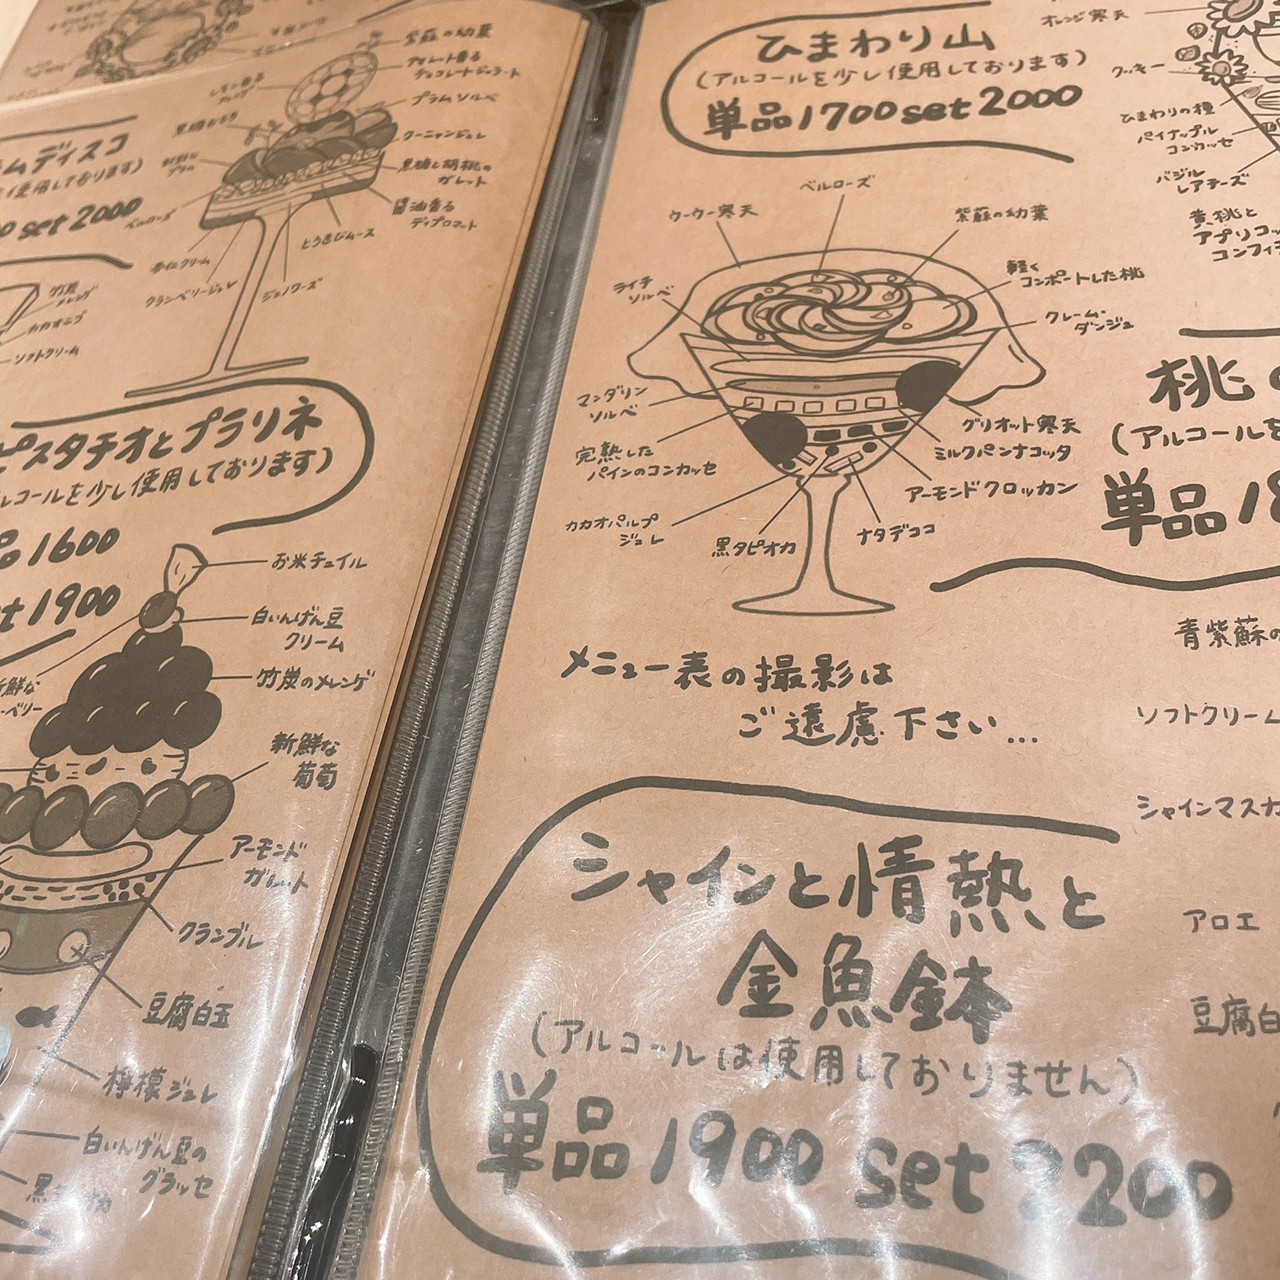 紫蘇の幼葉
チョコレートジェラート
プラムソルベ
クーニャンジュレ
黒糖と胡桃の
ガレット
醤油香る
ディプロマット
とうきびムース
ジェノワーズ
クランベリージュレ
杏仁クリーム
ムディスコ
使用しております)
set 2000
竹炭
メレンゲ
カカオニブ
ソフトクリーム
ピスタチオとプラリネ
ルコールを少し使用しております)
品1600
set 1900
お米チュイル
白いんげん豆
クリーム
竹炭のメレンゲ
新鮮な
葡萄
アーモンド
ガレット
クランブル
豆腐白玉
檸檬ジュレ
白いんげん豆の
グラッセ
ひまわり山
(アルコールを少し使用しております)
単品1700 set 2000
オレンジ寒天
クッキー
ひまわりの種
パイナップル
コンカッセ
バジル
レアチーズ
黄桃と
アプリコッ
コンフィ
ベルローズ
ウーウー寒天
紫蘇の幼葉
ライチ
ソルベ
軽く
コンポートした桃
クレーム・
ダンジュ
マンダリン
ソルベ
グリオット寒天
完熟した
パインのコンカッセ
ミルクパンナコッタ
アーモンドクロッカン
カカオパルプ
ジュレ
黒タピオカ
ナタデココ
桃
(アルコールを
単品18
メニュー表の撮影は
ご遠慮下さい…
青紫蘇の
ソフトクリーム
シャインマスカ
アロエ
豆腐白
シャインと情熱と
金魚鉢
(アルコールは使用しておりません)
単品1900 set 2200